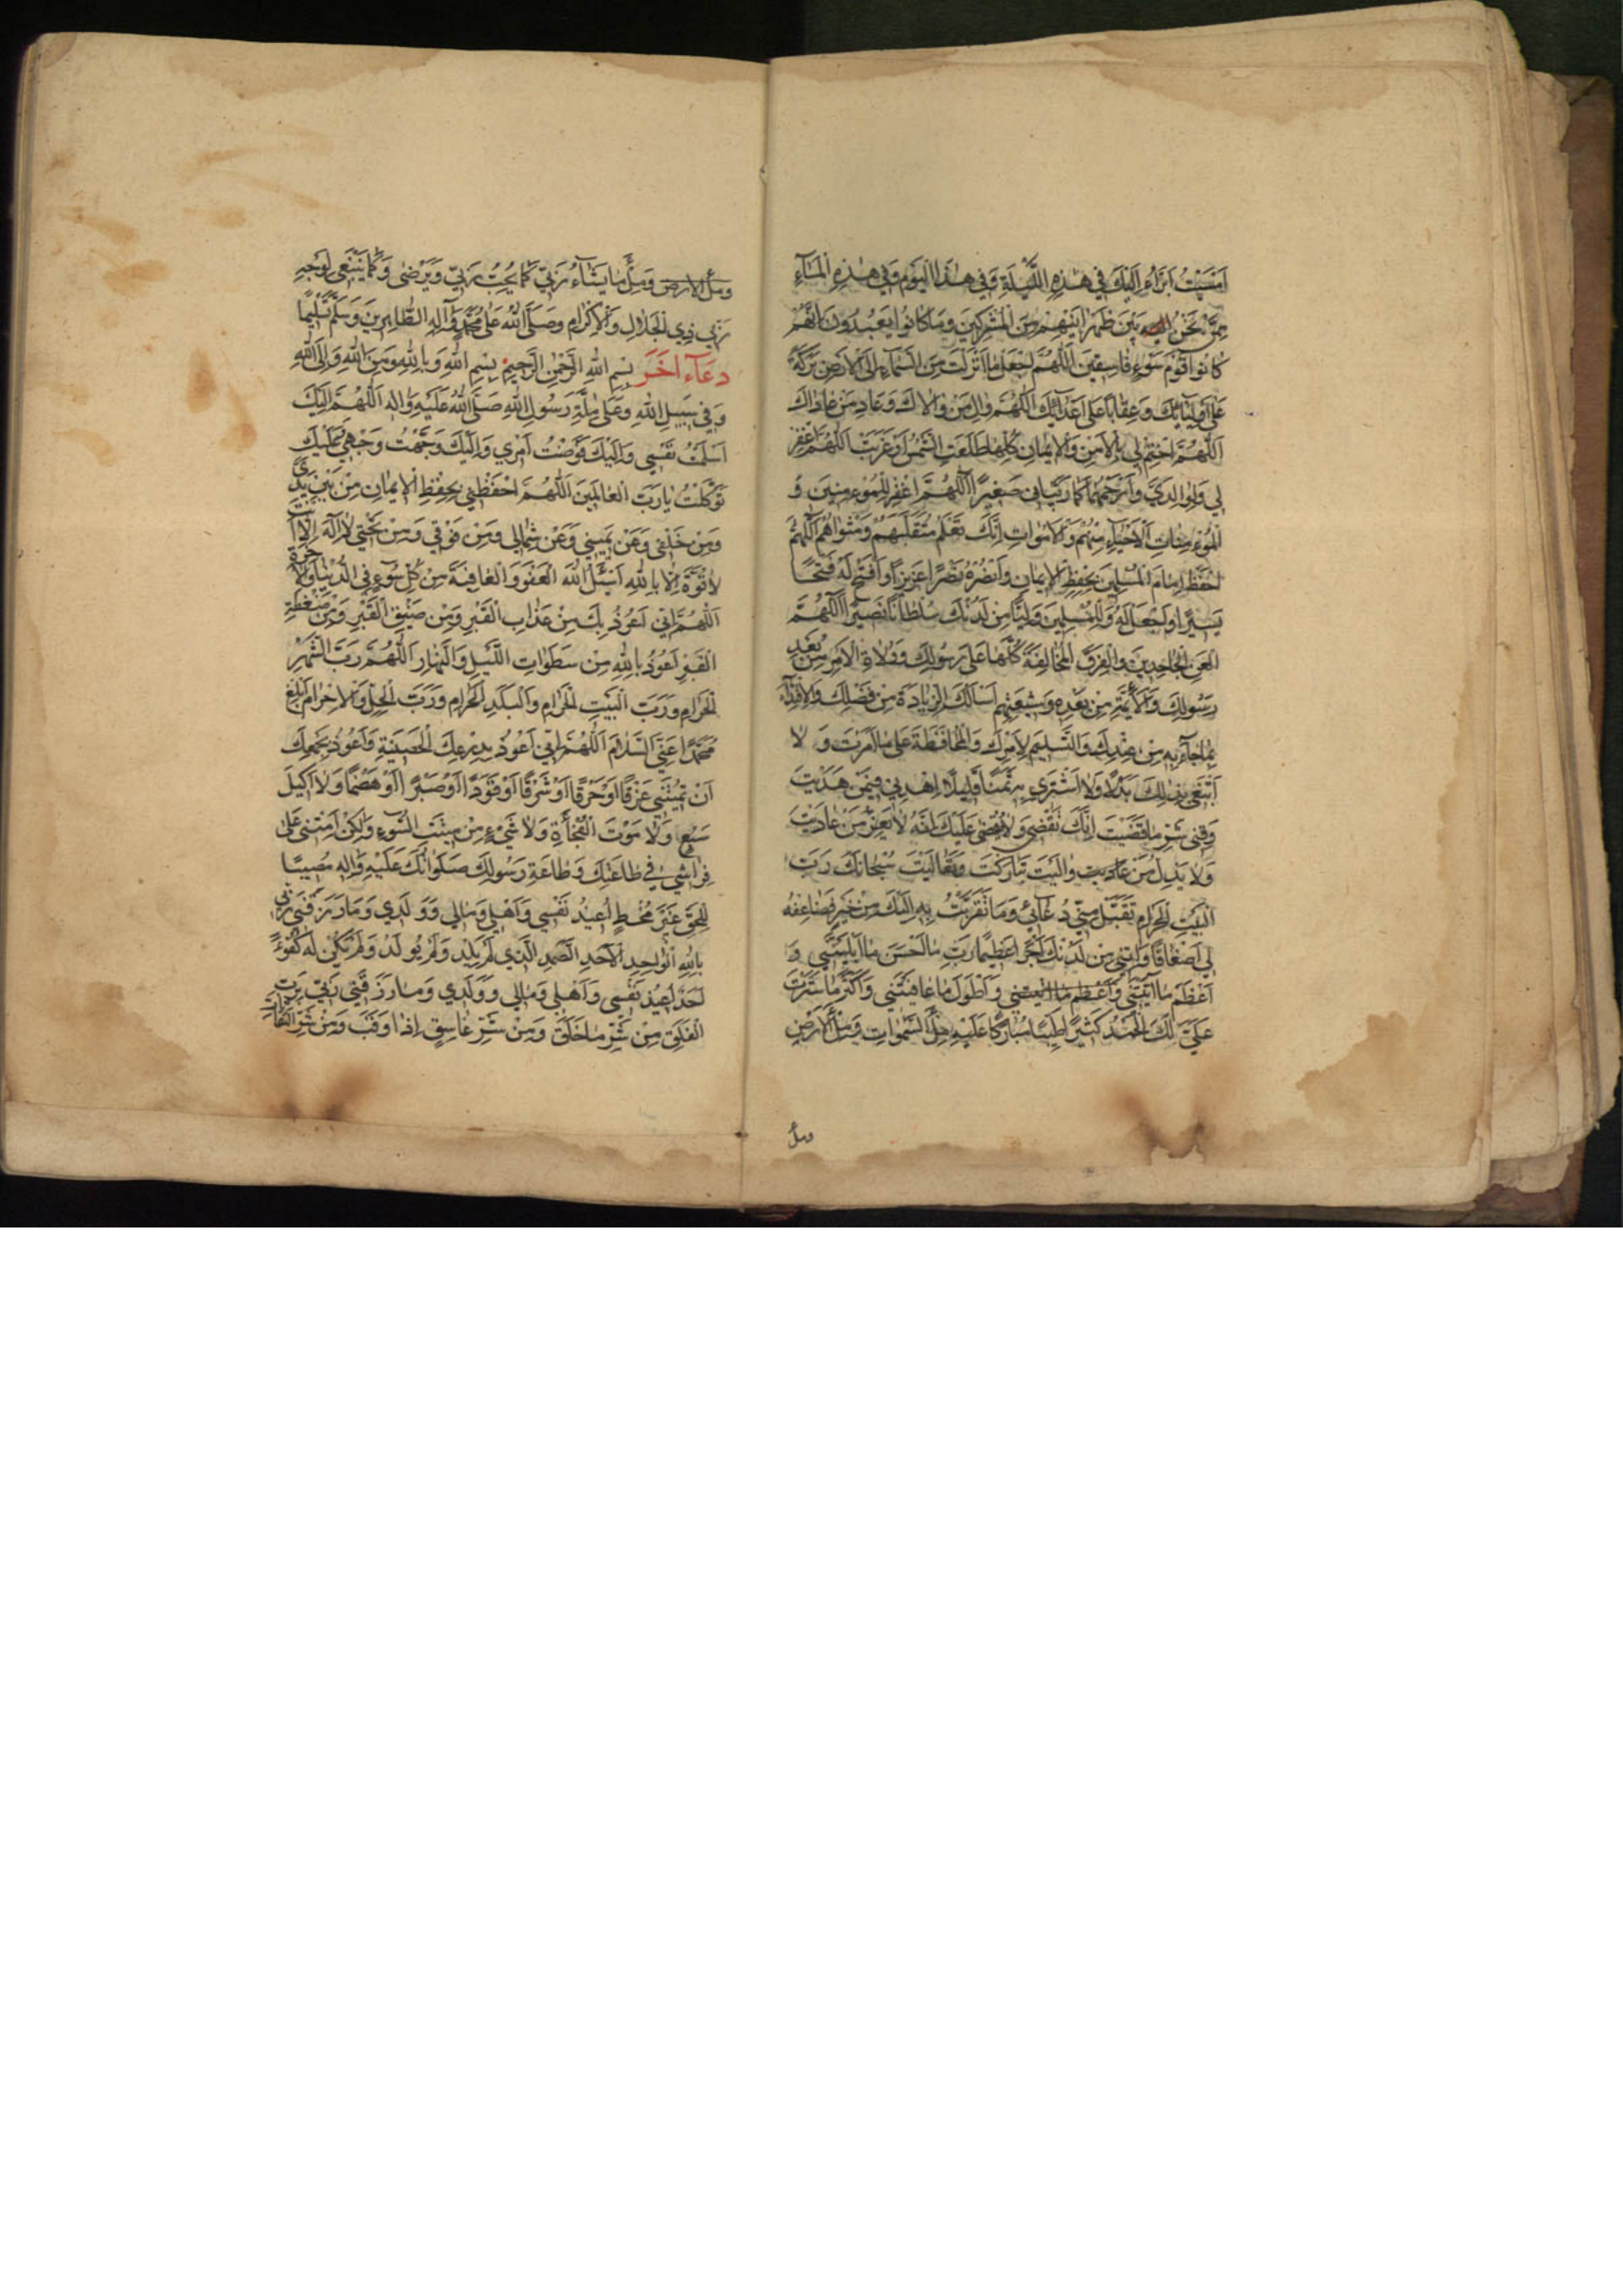 اَمْسَيْتُ اَبْرَأُ اِلَيْكَ في هٰذِهِ اللَّيْلَةِ وَفي هٰذَا الْيَوْمِ وَفي هٰذِهِ الْمَسٰآءِ
مِمَّنْ نَحْنُ بَيْنَ ظَهْرٰانَيْهِمْ مِنَ الْمُشْرِكينَ وَمٰا كٰانُوا يَعْبُدُونَ اِنَّهُمْ
كٰانُوا قَوْمَ سَوْءٍ فٰاسِقينَ اَللّٰهُمَّ اجْعَلْ مٰا اَنْزَلْتَ مِنَ السَّمٰآءِ اِلَى الْاَرْضِ بَرَكَةً
عَلىٰ اَوْلِيٰآئِكَ وَعِقٰاباً عَلىٰ اَعْدٰآئِكَ اَللّٰهُمَّ وٰالِ مَنْ وٰالٰاكَ وَعٰادِ مَنْ عٰادٰاكَ
اَللّٰهُمَّ اخْتِمْ لي بِالْاَمْنِ وَالْايمٰانِ كُلَّمٰا طَلَعَتِ الشَّمْسُ اَوْ غَرَبَتْ اَللّٰهُمَّ اغْفِرْ
لي وَلِوٰالِدَيَّ وَارْحَمْهُمٰا كَمٰا رَبَّيٰاني صَغيراً اَللّٰهُمَّ اغْفِرْ لِلْمُؤْمِنينَ وَ
الْمُؤْمِنٰاتِ اَلْاَحْيٰآءِ مِنْهُمْ وَالْاَمْوٰاتِ اِنَّكَ تَعْلَمُ مُتَقَلَّبَهُمْ وَمَثْوٰاهُمْ اَللّٰهُمَّ
احْفَظْ اِمٰامَ الْمُسْلِمينَ بِحِفْظِ الْايمٰانِ وَانْصُرْهُ نَصْراً عَزيزاً وَافْتَحْ لَهُ فَتْحاً
يَسيراً وَاجْعَلْ لَهُ وَلِلْمُسْلِمينَ مِنْ لَدُنْكَ سُلْطٰاناً نَصيراً اَللّٰهُمَّ
الْعَنِ الْجٰاحِدينَ وَالْفِرَقَ الْمُخٰالِفَةَ كُلَّهٰا عَلىٰ رَسُولِكَ وَوُلٰاةِ الْاَمْرِ مِنْ بَعْدِ
رَسُولِكَ وَالْاَئِمَّةِ مِنْ بَعْدِهِ وَشيعَتِهِمْ اَسْأَلُكَ الزِّيٰادَةَ مِنْ فَضْلِكَ وَالْاِقْتِدٰآءَ
بِمٰا جٰآءَ بِهِ مِنْ عِنْدِكَ وَالتَّسْليمَ لِاَمْرِكَ وَالْمُحٰافَظَةَ عَلىٰ مٰا اَمَرْتَ وَلٰا
اَبْتَغي بِذٰلِكَ بَدَلاً وَلٰا اَشْتَري بِهِ ثَمَناً قَليلاً اِهْدِني فيمَنْ هَدَيْتَ
وَقِني شَرَّ مٰا قَضَيْتَ اِنَّكَ تَقْضي وَلٰا يُقْضىٰ عَلَيْكَ اِنَّهُ لٰا يَعِزُّ مَنْ عٰادَيْتَ
وَلٰا يَذِلُّ مَنْ وٰالَيْتَ تَبٰارَكْتَ وَتَعٰالَيْتَ سُبْحٰانَكَ رَبَّ
الْبَيْتِ الْحَرٰامِ تَقَبَّلْ مِنّي دُعٰآئي وَمٰا تَقَرَّبْتُ بِهِ اِلَيْكَ مِنْ خَيْرٍ فَضٰاعِفْهُ
لي اَضْعٰافاً وَآتِني مِنْ لَدُنْكَ اَجْراً عَظيماً رَبِّ مٰا اَحْسَنَ مٰا اَبْلَيْتَني وَ
اَعْظَمَ مٰا آتَيْتَني وَاَطْوَلَ مٰا عٰافَيْتَني وَاَكْثَرَ مٰا سَتَرْتَ
عَلَيَّ لَكَ الْحَمْدُ كَثيراً طَيِّباً مُبٰارَكاً عَلَيْهِ مِلْأَ السَّمٰوٰاتِ وَمِلْأَ الْاَرْضِ
ومل
ومل الارض وَمِلْأَ مٰا يَشٰآءُ رَبّي كَمٰا يُحِبُّ رَبّي وَيَرْضىٰ وَكَمٰا يَنْبَغي لِوَجْهِ
رَبّي ذِي الْجَلٰالِ وَالْاِكْرٰامِ وَصَلَّى اللّٰهُ عَلىٰ مُحَمَّدٍ وَآلِهِ الطّٰاهِرينَ وَسَلَّمَ تَسْليماً
دعَآء اخَر بِسْمِ اللّٰهِ الرَّحْمٰنِ الرَّحيمِ بِسْمِ اللّٰهِ وَبِاللّٰهِ وَمِنَ اللّٰهِ وَاِلَى اللّٰهِ
وَفي سَبيلِ اللّٰهِ وَعَلىٰ مِلَّةِ رَسُولِ اللّٰهِ صَلَّى اللّٰهُ عَلَيْهِ وَآلِهِ اَللّٰهُمَّ اِلَيْكَ
اَسْلَمْتُ نَفْسي وَاِلَيْكَ فَوَّضْتُ اَمْري وَاِلَيْكَ وَجَّهْتُ وَجْهي وَعَلَيْكَ
تَوَكَّلْتُ يٰا رَبَّ الْعٰالَمينَ اَللّٰهُمَّ احْفَظْني بِحِفْظِ الْايمٰانِ مِنْ بَيْنِ يَدَيَّ
وَمِنْ خَلْفي وَعَنْ يَميني وَعَنْ شِمٰالي وَمِنْ فَوْقي وَمِنْ تَحْتي لٰا اِلٰهَ اِلّٰا اَنْتَ
لٰا قُوَّةَ اِلّٰا بِاللّٰهِ اَسْئَلُ اللّٰهَ الْعَفْوَ وَالْعٰافِيَةَ مِنْ كُلِّ سُوءٍ فِي الدُّنْيٰا وَالْآخِرَةِ
اَللّٰهُمَّ اِنّي اَعُوذُ بِكَ مِنْ عَذٰابِ الْقَبْرِ وَمِنْ ضيقِ الْقَبْرِ وَمِنْ ضَغْطَةِ
الْقَبْرِ اَعُوذُ بِاللّٰهِ مِنْ سَطَوٰاتِ اللَّيْلِ وَالنَّهٰارِ اَللّٰهُمَّ رَبَّ الشَّهْرِ
الْحَرٰامِ وَرَبَّ الْبَيْتِ الْحَرٰامِ وَالْبَلَدِ الْحَرٰامِ وَرَبَّ الْحِلِّ وَالْاِحْرٰامِ اَبْلِغْ
مُحَمَّداً عَنِّي السَّلٰامَ اَللّٰهُمَّ اِنّي اَعُوذُ بِدِرْعِكَ الْحَصينَةِ وَاَعُوذُ بِجَمْعِكَ
اَنْ تُميتَني غَرْقاً اَوْ حَرْقاً اَوْ شَرَقاً اَوْ قَوَداً اَوْ صَبْراً اَوْ هَضْماً وَلٰا اَكيلَ
سَبُعٍ وَلٰا مَوْتَ الْفُجْأَةِ وَلٰا شَيْءٍ مِنْ ميتَةِ السُّوءِ وَلٰكِنْ اَمِتْني عَلىٰ
فِرٰاشي في طٰاعَتِكَ وَطٰاعَةِ رَسُولِكَ صَلَوٰاتُكَ عَلَيْهِ وَآلِهِ مُصيباً
لِلْحَقِّ غَيْرَ مُخْطِئٍ اُعيذُ نَفْسي وَاَهْلي وَمٰالي وَوَلَدي وَمٰا رَزَقَني رَبّي
بِاللّٰهِ الْوٰاحِدِ الْاَحَدِ الصَّمَدِ الَّذي لَمْ يَلِدْ وَلَمْ يُولَدْ وَلَمْ يَكُنْ لَهُ كُفُوًا
اَحَدٌ اُعيذُ نَفْسي وَاَهْلي وَمٰالي وَوَلَدي وَمٰا رَزَقَني رَبّي بِرَبِّ
الْفَلَقِ مِنْ شَرِّ مٰا خَلَقَ وَمِنْ شَرِّ غٰاسِقٍ اِذٰا وَقَبَ وَمِنْ شَرِّ النَّفّٰاثٰاتِ